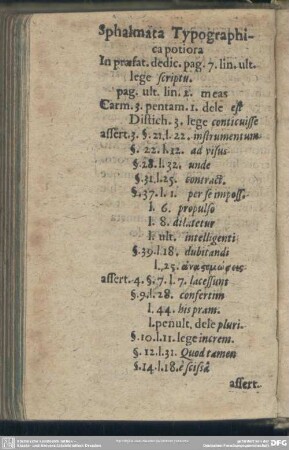 Sphalmata Typographi-
ca potiora
In præfat. dedic. pag. 7. lin. ult.
lege scriptu.
pag. ult. lin. 2. meas
Carm. 3. pentam. 1. dele est
Distich. 3. lege conticuisse
assert. 3. §. 21. l. 22. instrumentum
§. 22. l. 12. ad visus
§. 28. l. 32. unde
§. 31. l. 25. contract.
§. 37. l. 1. per se imposs.
l. 6. propulso
l. 8. dilatetur
l. ult. intelligenti
§. 39. l. 18. dubitandi
l. 25.
assert. 4. §. 7. l. 7. lacessunt
§. 9. l. 28. confertim
l. 44. his pram.
l. penult. dele pluri.
§. 10. l. 11. lege increm.
§. 12. l. 31. Quod tamen
§. 14. l. 18. è scisiâ
assert.